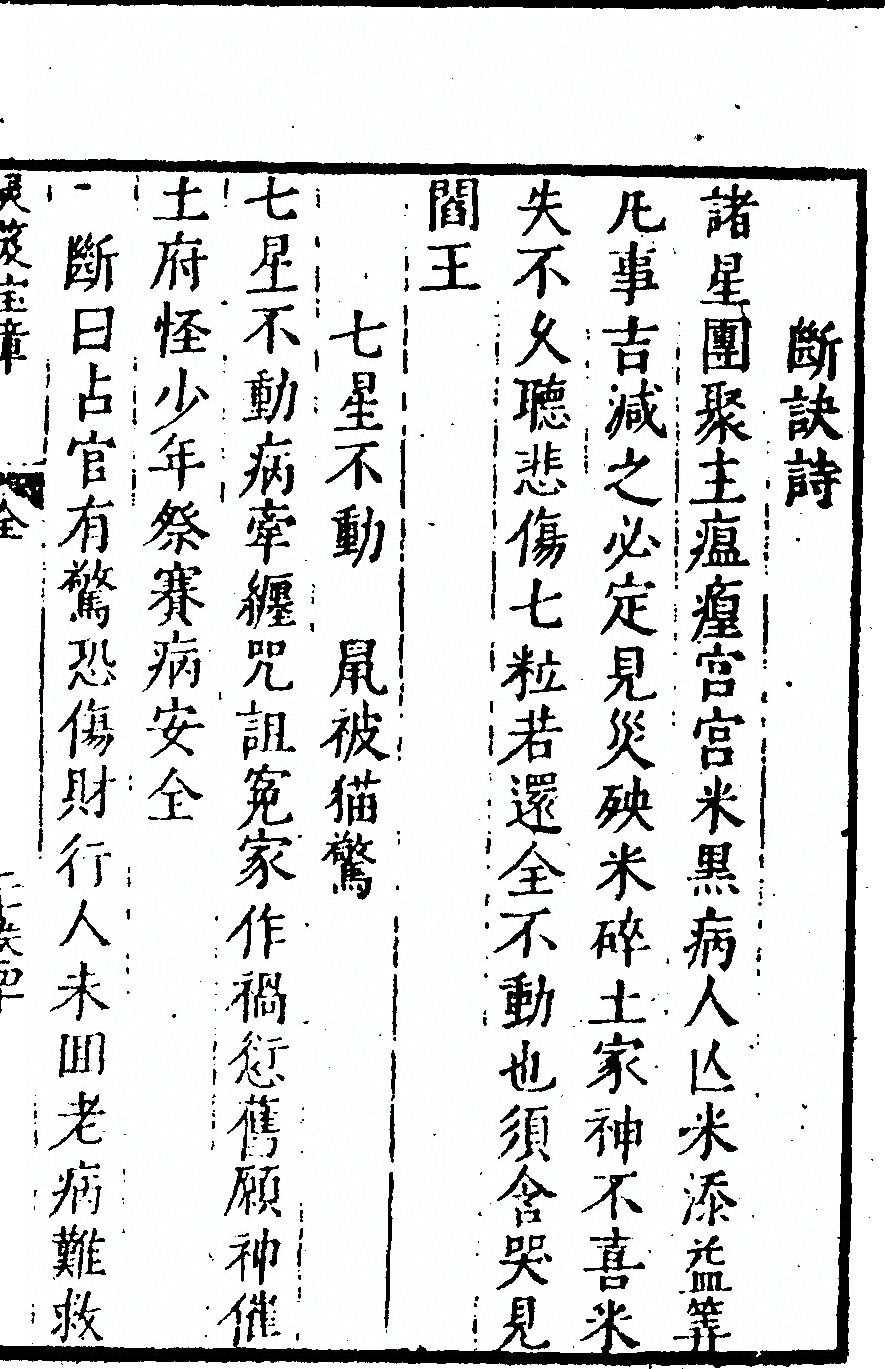 斷訣詩
諸星團聚主瘟㾮宮宮米黑病人亾米添益筭
凡事吉減之必定見災殃米碎土家神不喜米
失不久聽悲傷七粒若還全不動也須含哭見
閻王
七星不動　鼠被猫驚
七星不動病牽纏咒詛冤家作禍愆舊願神催
土府怪少年祭賽病安全
斷曰占官有驚恐傷財行人未囬老病難救
笈宝章　全